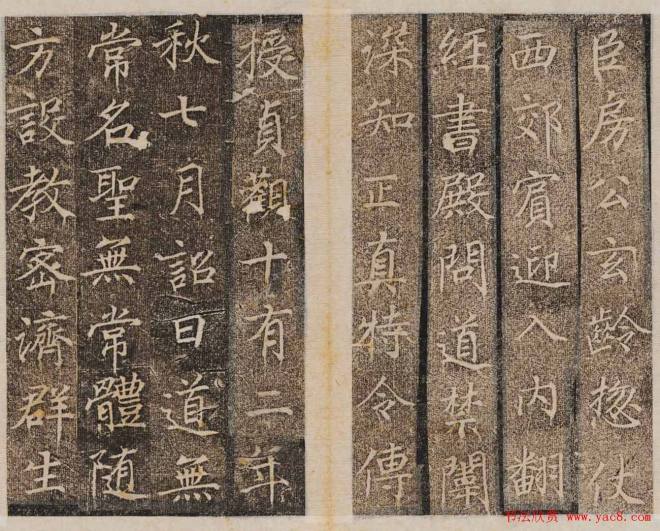 臣房公玄齡惣仗
西郊賓迎入內翻
經書殿問道禁闈
深知正真特令傳
授貞觀十有二年
秋七月詔曰道無
常名聖無常體随
方設教密濟群生
书法欣赏 www.yac8.com